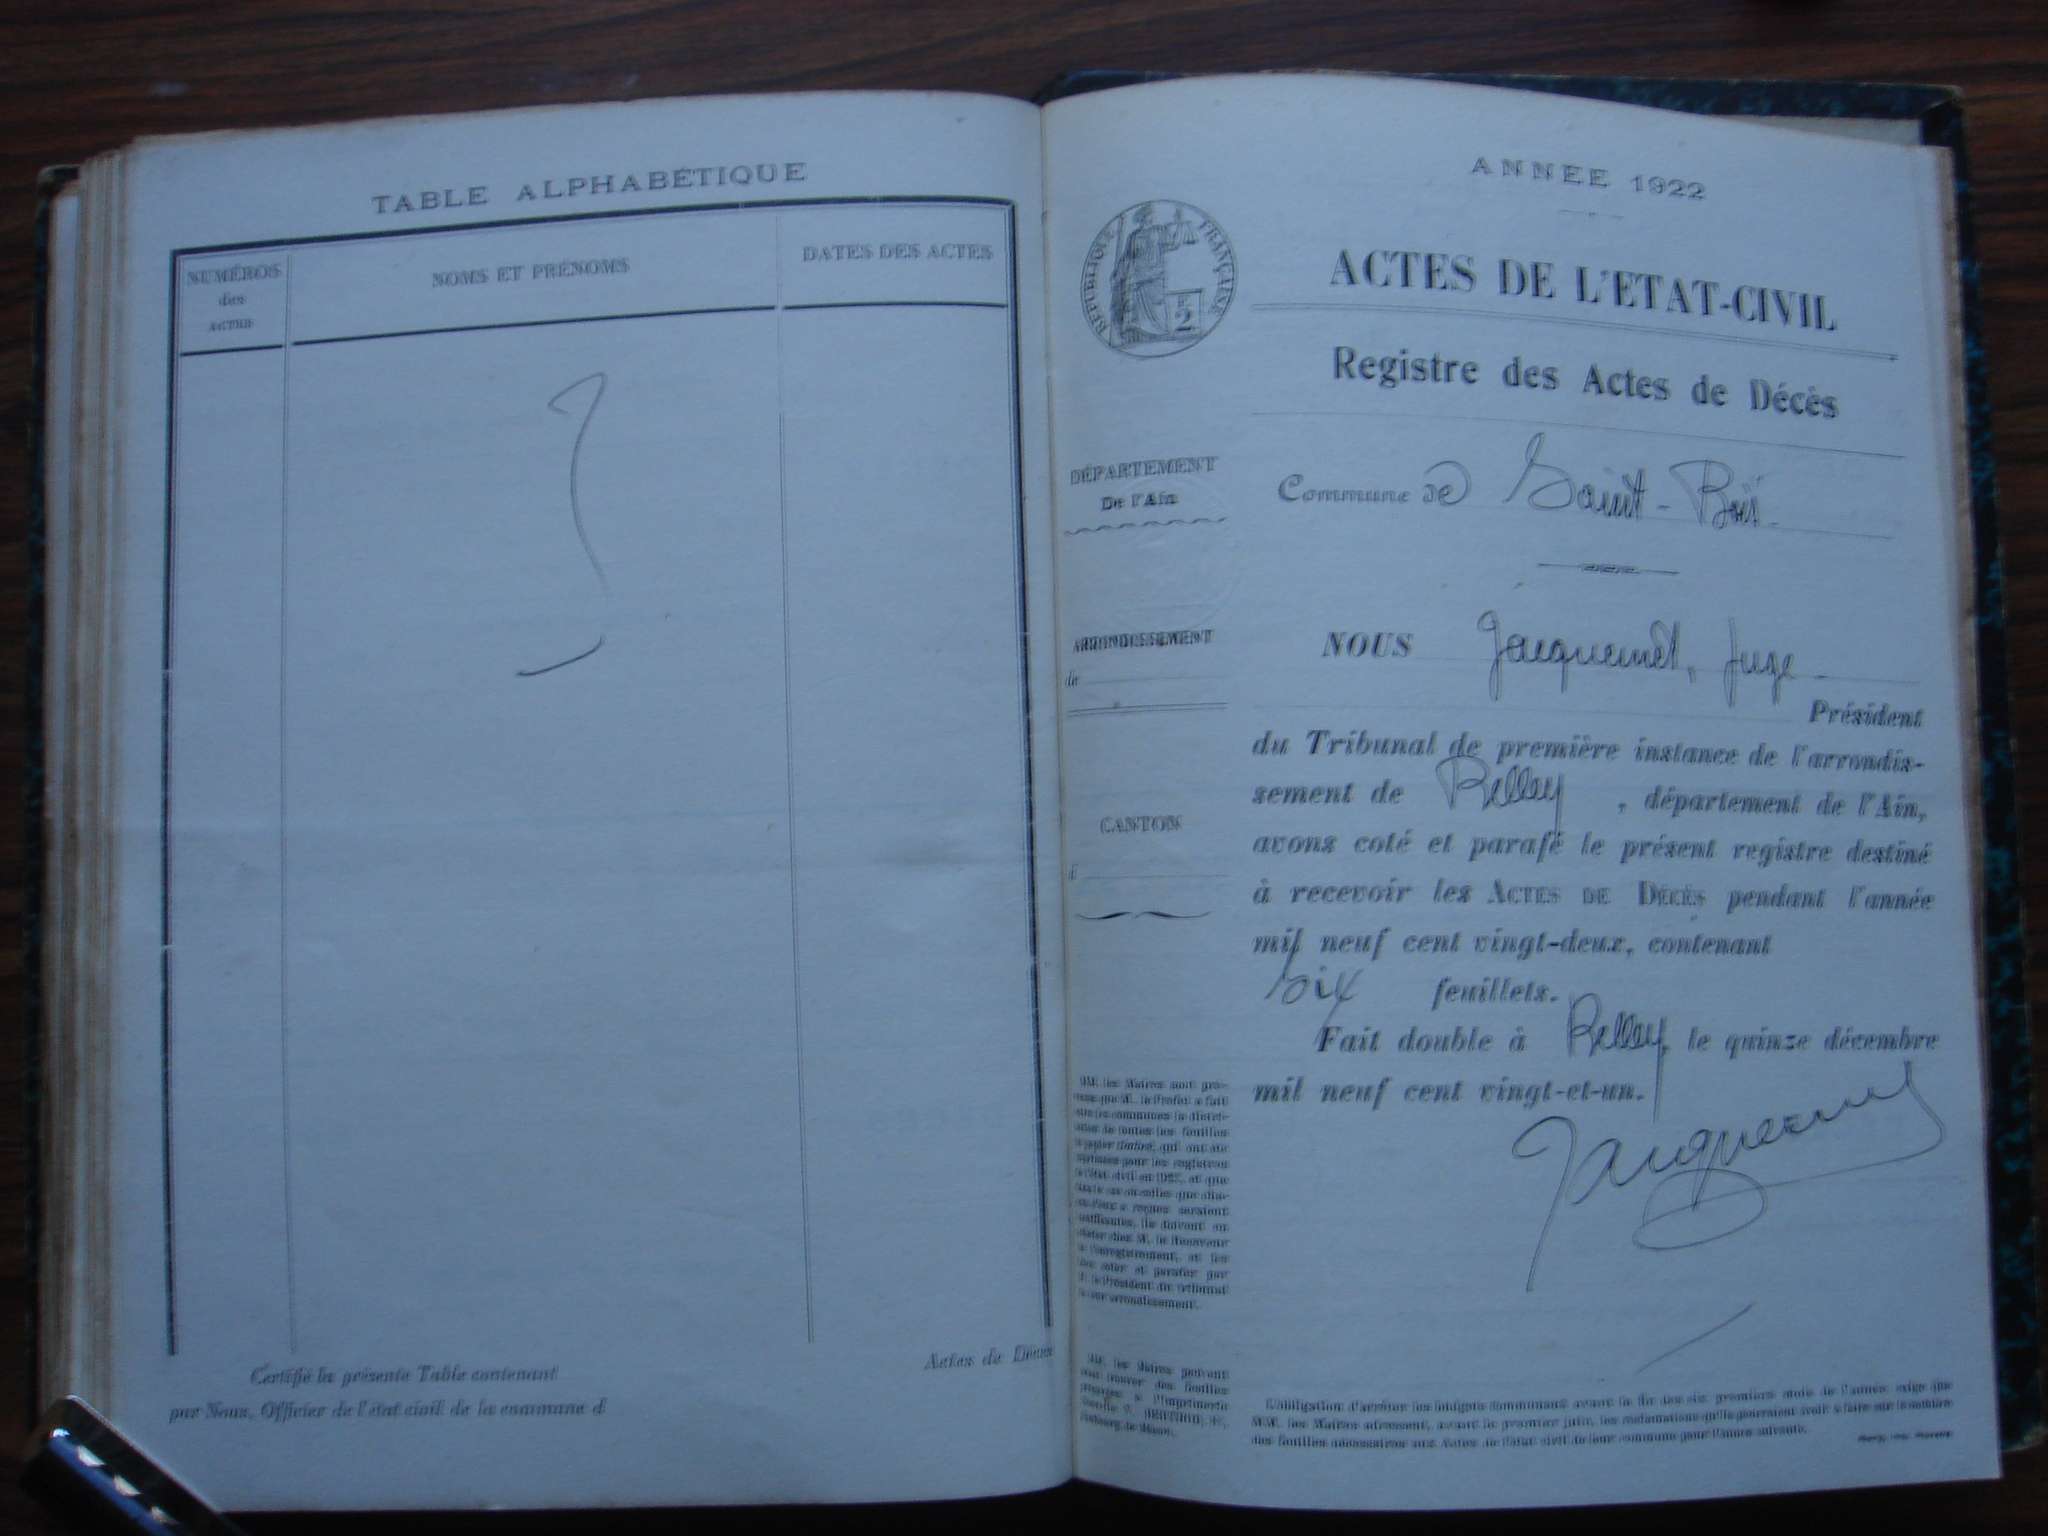 TABLE ALPHABÉTIQUE
NUMÉROS
des
ACTES
NOMS ET PRÉNOMS
DATES DES ACTES
Certifié la présente Table contenant
Actes de Décès
par Nous, Officier de l'état civil de la commune d
ANNEE 1922
REPUBLIQUE FRANÇAISE
2
ACTES DE L'ETAT-CIVIL
Registre des Actes de Décès
DÉPARTEMENT
De l'Ain
Commune de Saint-Bois
ARRONDISSEMENT
de
NOUS Jacquemet, Juge
Président
du Tribunal de première instance de l'arrondis-
sement de Belley, département de l'Ain,
CANTON
d
avons coté et parafé le présent registre destiné
à recevoir les ACTES DE DÉCÈS pendant l'année
mil neuf cent vingt-deux, contenant
six feuillets.
Fait double à Belley, le quinze décembre
mil neuf cent vingt-et-un.
Jacquemet
MM. les Maires sont pré-
venus que M. le Préfet a fait
aux communes la distri-
bution de toutes les feuilles
de papier timbré, qui ont été
l'état civil en 1922, et que
de l'enregistrement, et les
faire coter et parafer par
M. le Président du Tribunal
de leur arrondissement.
MM. les Maires peuvent
des feuilles
à l'Imprimerie
L'obligation d'arrêter les budgets communaux avant la fin des six premiers mois de l'année exige que
MM. les Maires adressent, avant le premier juin, les réclamations qu'ils pourraient avoir à faire sur le nombre
des feuilles nécessaires aux Actes de l'état civil de leur commune pour l'année suivante.